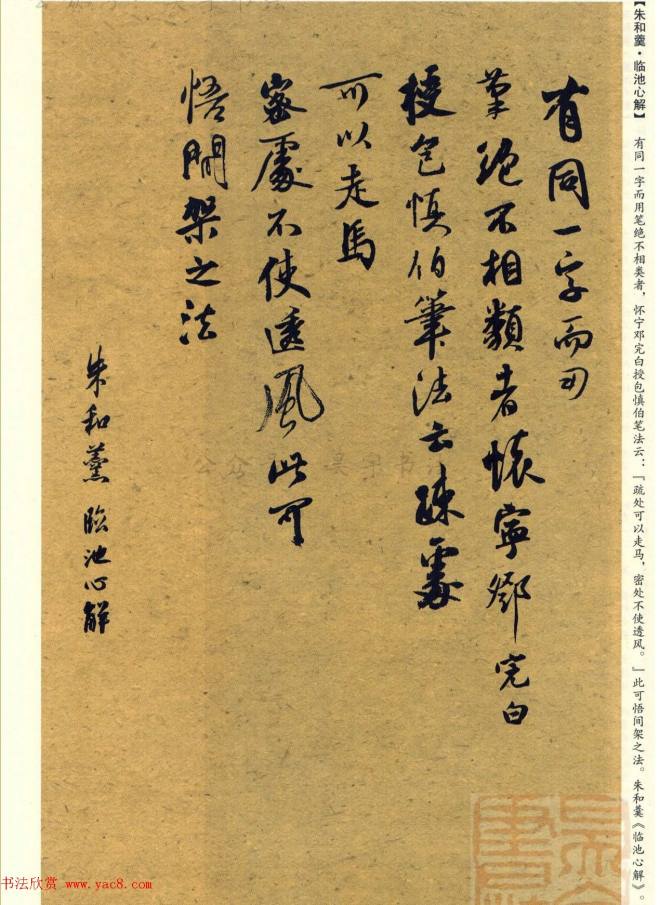 【朱和羹·临池心解】 有同一字而用笔绝不相类者，怀宁邓完白授包慎伯笔法云：「疏处可以走马，密处不使透风。」此可悟间架之法。朱和羹《临池心解》。
有同一字而用
筆絕不相類者懷寧鄧完白
授包慎伯筆法云疎處
可以走馬
密處不使透風此可
悟間架之法
朱和羹 臨池心解
书法欣赏 www.yac8.com